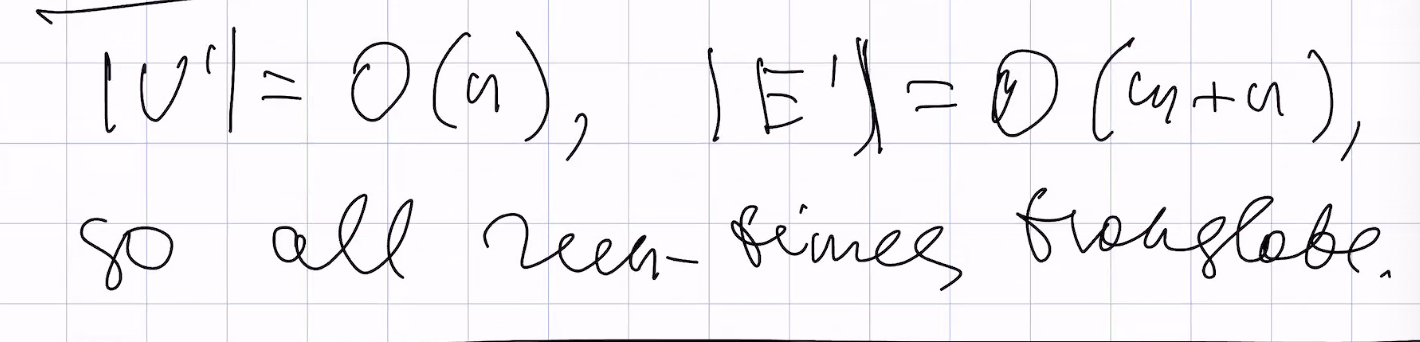 |V'| = O(n), |E'| = O(m+n),
so all run-times translate.